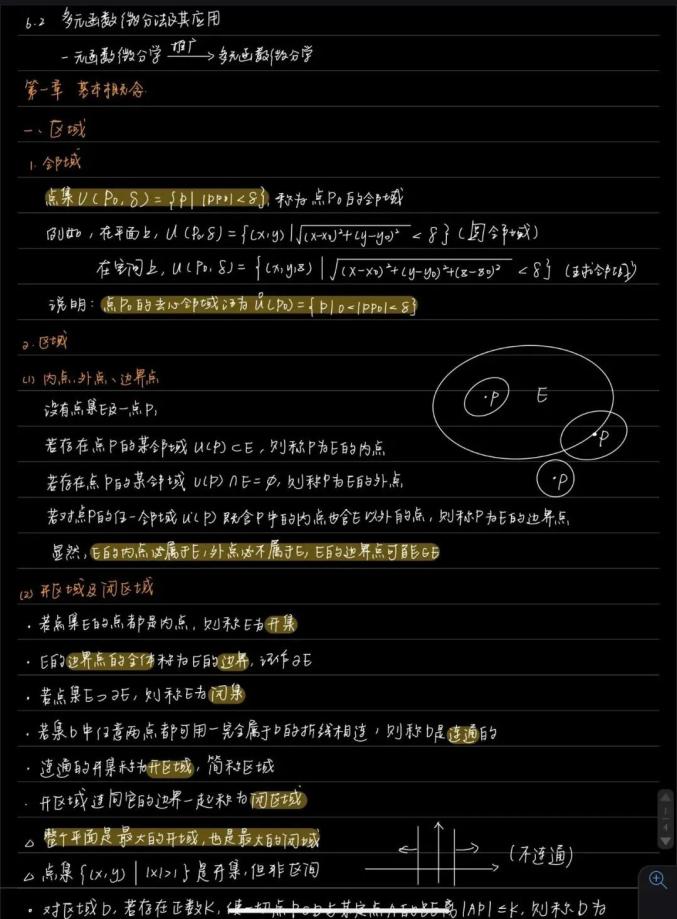 6.2 多元函数微分法及其应用
一元函数微分学 推广→ 多元函数微分学
第一章 基本概念
一、区域
1. 邻域
点集U(P₀,δ)={P| |PP₀|<δ}, 称为点P₀的邻域
例如,在平面上,U(P₀,δ)={(x,y)|√(x-x₀)²+(y-y₀)² <δ}(圆邻域)
在空间上,U(P₀,δ)={(x,y,z)|√(x-x₀)²+(y-y₀)²+(z-z₀)² <δ}(球邻域)
说明:点P₀的去心邻域记为Ů(P₀)={P|0<|PP₀|<δ}
2. 区域
(1) 内点、外点、边界点
设有点集E及一点P,
若存在点P的某邻域U(P)⊂E,则称P为E的内点
若存在点P的某邻域U(P)∩E=∅,则称P为E的外点
若对点P的任一邻域U(P)既含P中的内点也含E以外的点,则称P为E的边界点
显然,E的内点必属于E,外点必不属于E,E的边界点可能
·P E
·P
·P
(2) 开区域及闭区域
· 若点集E的点都是内点,则称E为开集
· E的边界点的全体称为E的边界,记作∂E
· 若点集E⊃∂E,则称E为闭集
· 若集D中任意两点都可用一完全属于D的折线相连,则称D是连通的
· 连通的开集称为开区域,简称区域
· 开区域连同它的边界一起称为闭区域
△ 整个平面是最大的开域,也是最大的闭域
△ 点集{(x,y)| |x|>1}是开集,但非区间
(不连通)
· 对区域D,若存在正数K, |AP|≤K,则称D为
1
4